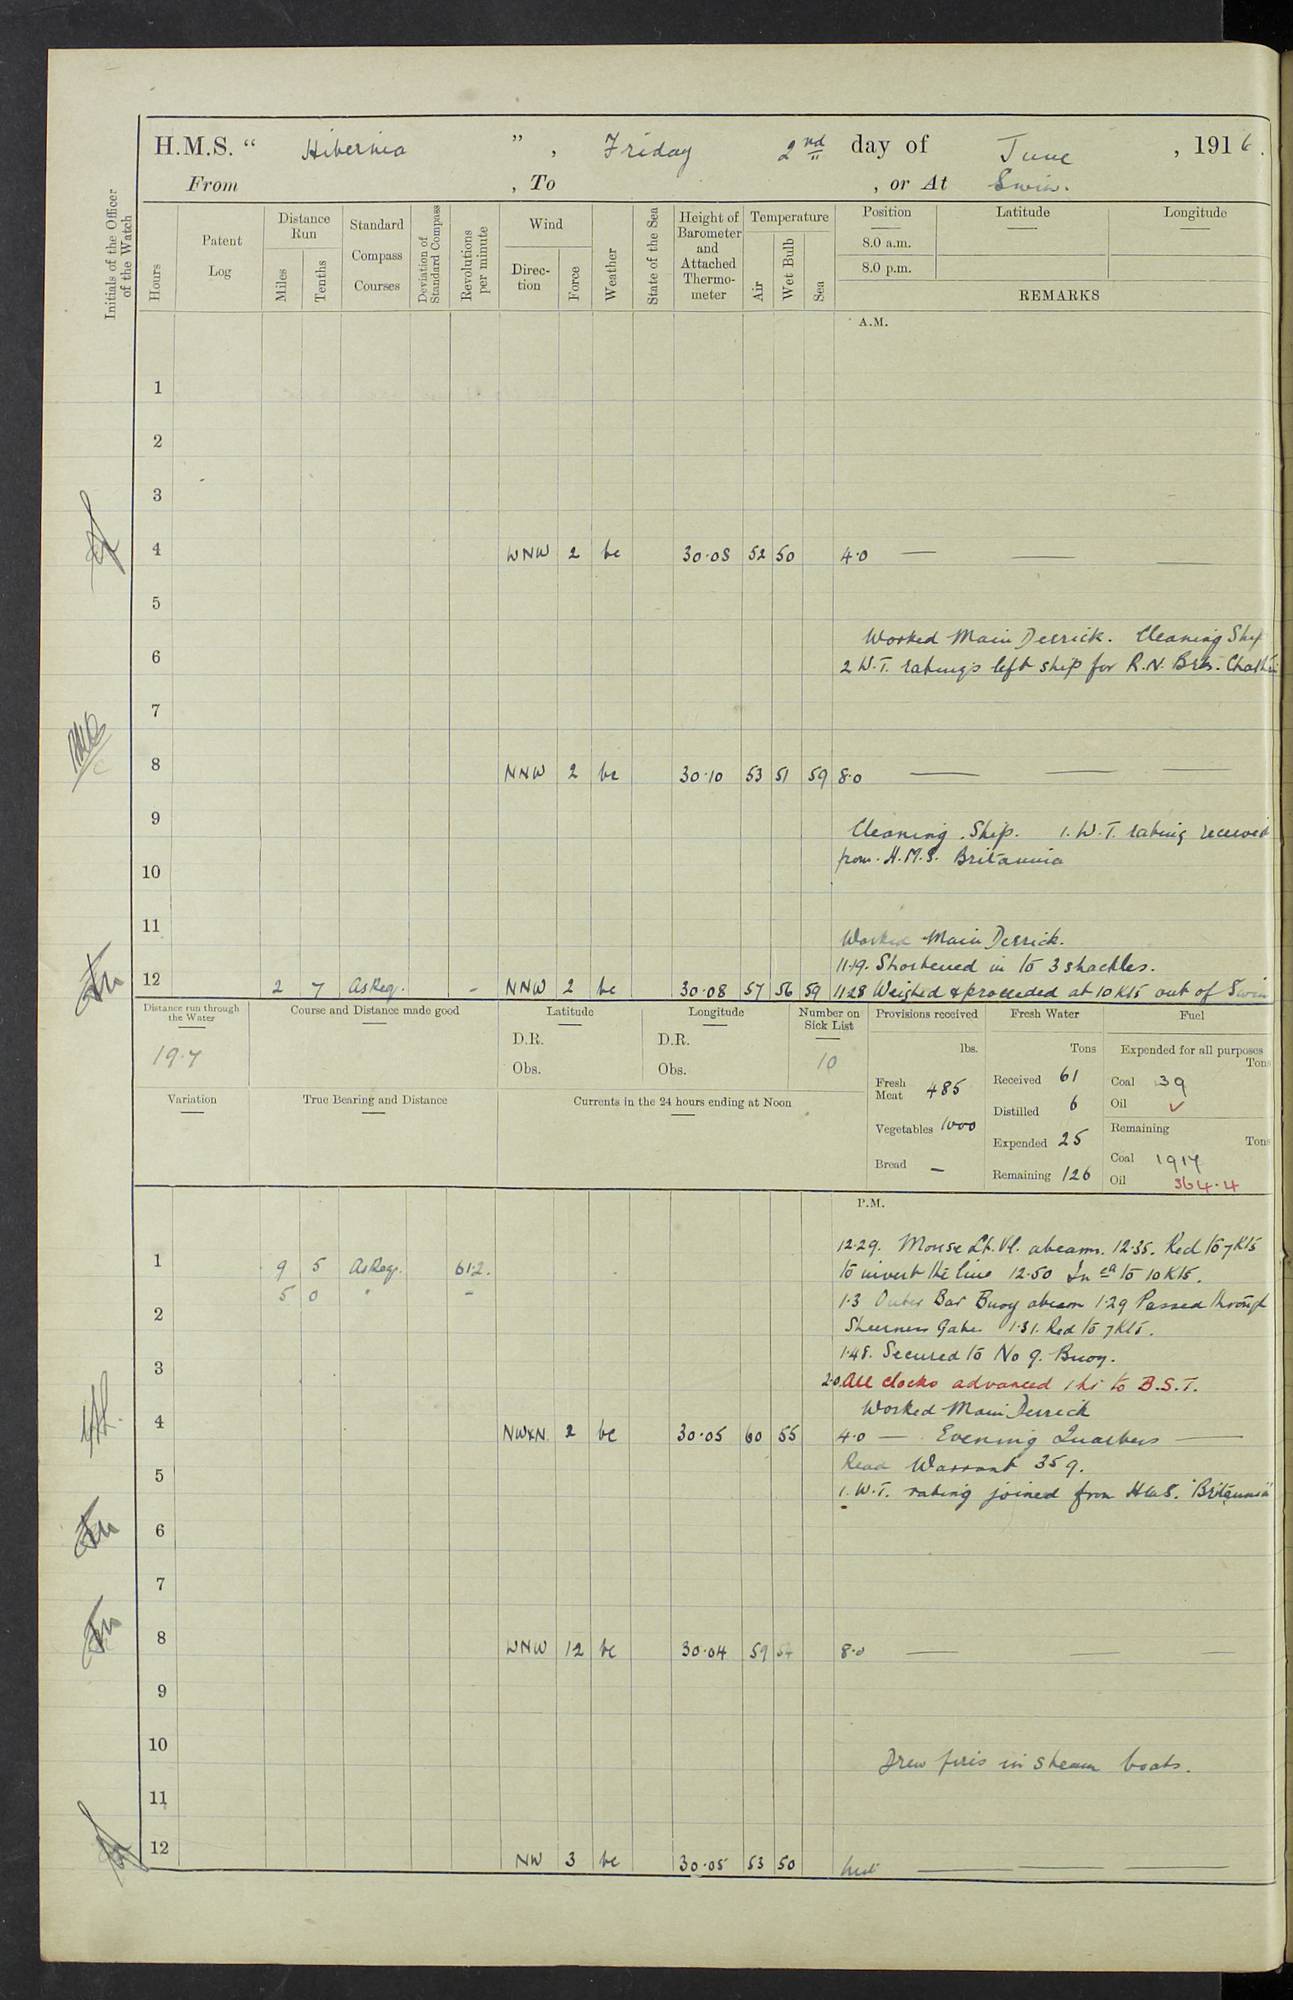 H.M.S. “ Hibernia ” , Friday 2nd day of June , 1916.
From , To , or At Swin.
Initials of the Officer of the Watch
Hours
Patent Log
Distance Run
Miles
Tenths
Standard Compass Courses
Deviation of Standard Compass
Revolutions per minute
Wind
Direc- tion
Force
Weather
State of the Sea
Height of Barometer and Attached Thermo- meter
Temperature
Air
Wet Bulb
Sea
Position
Latitude
Longitude
8.0 a.m.
8.0 p.m.
REMARKS
A.M.
1
2
3
4 WNW 2 bc 30·08 52 50 4·0 — — —
5
Worked Main Derrick. Cleaning Ship
6
2 W.T. ratings left ship for R.N. Brks. Chatham
7
8 NNW 2 bc 30·10 53 51 59 8·0 — — —
9
Cleaning Ship. 1. W.T. rating received
from H.M.S. Britannia
10
11
Worked Main Derrick.
11·19. Shortened in to 3 shackles.
12 2 7 As Req. - NNW 2 bc 30·08 57 56 59 11·28 Weighed & proceeded at 10 Kts out of Swin
Distance run through the Water
19·7
Course and Distance made good
Latitude
D.R.
Obs.
Longitude
D.R.
Obs.
Number on Sick List
10
Provisions received
lbs.
Fresh Meat 485
Vegetables 1000
Bread —
Fresh Water
Tons
Received 61
Distilled 6
Expended 25
Remaining 126
Fuel
Expended for all purposes
Tons
Coal 39
Oil ✓
Remaining
Tons
Coal 1917
Oil 364·4
Variation
True Bearing and Distance
Currents in the 24 hours ending at Noon
P.M.
12·29. Mouse Lt. Vl. abeam. 12·35. Red to 7 Kts
1 9 5 As Req. 61·2. to invert the line 12·50 Inced to 10 Kts.
5 0 " - 1·3 Outer Bar Buoy abeam 1·29 Passed through
2
Sheerness Gate 1·31. Red to 7 Kts.
1·48. Secured to No 9. Buoy.
3
2·0. All clocks advanced 1 hr to B.S.T.
Worked Main Derrick
4 NWxN 2 bc 30·05 60 55 4·0 — Evening Quarters —
Read Warrant 359.
5
1. W.T. rating joined from HMS. "Britannia"
6
7
8 WNW 12 bc 30·04 59 54 8·0 — — —
9
10
Drew fires in steam boats.
11
12 NW 3 bc 30·05 53 50 Mid — — —